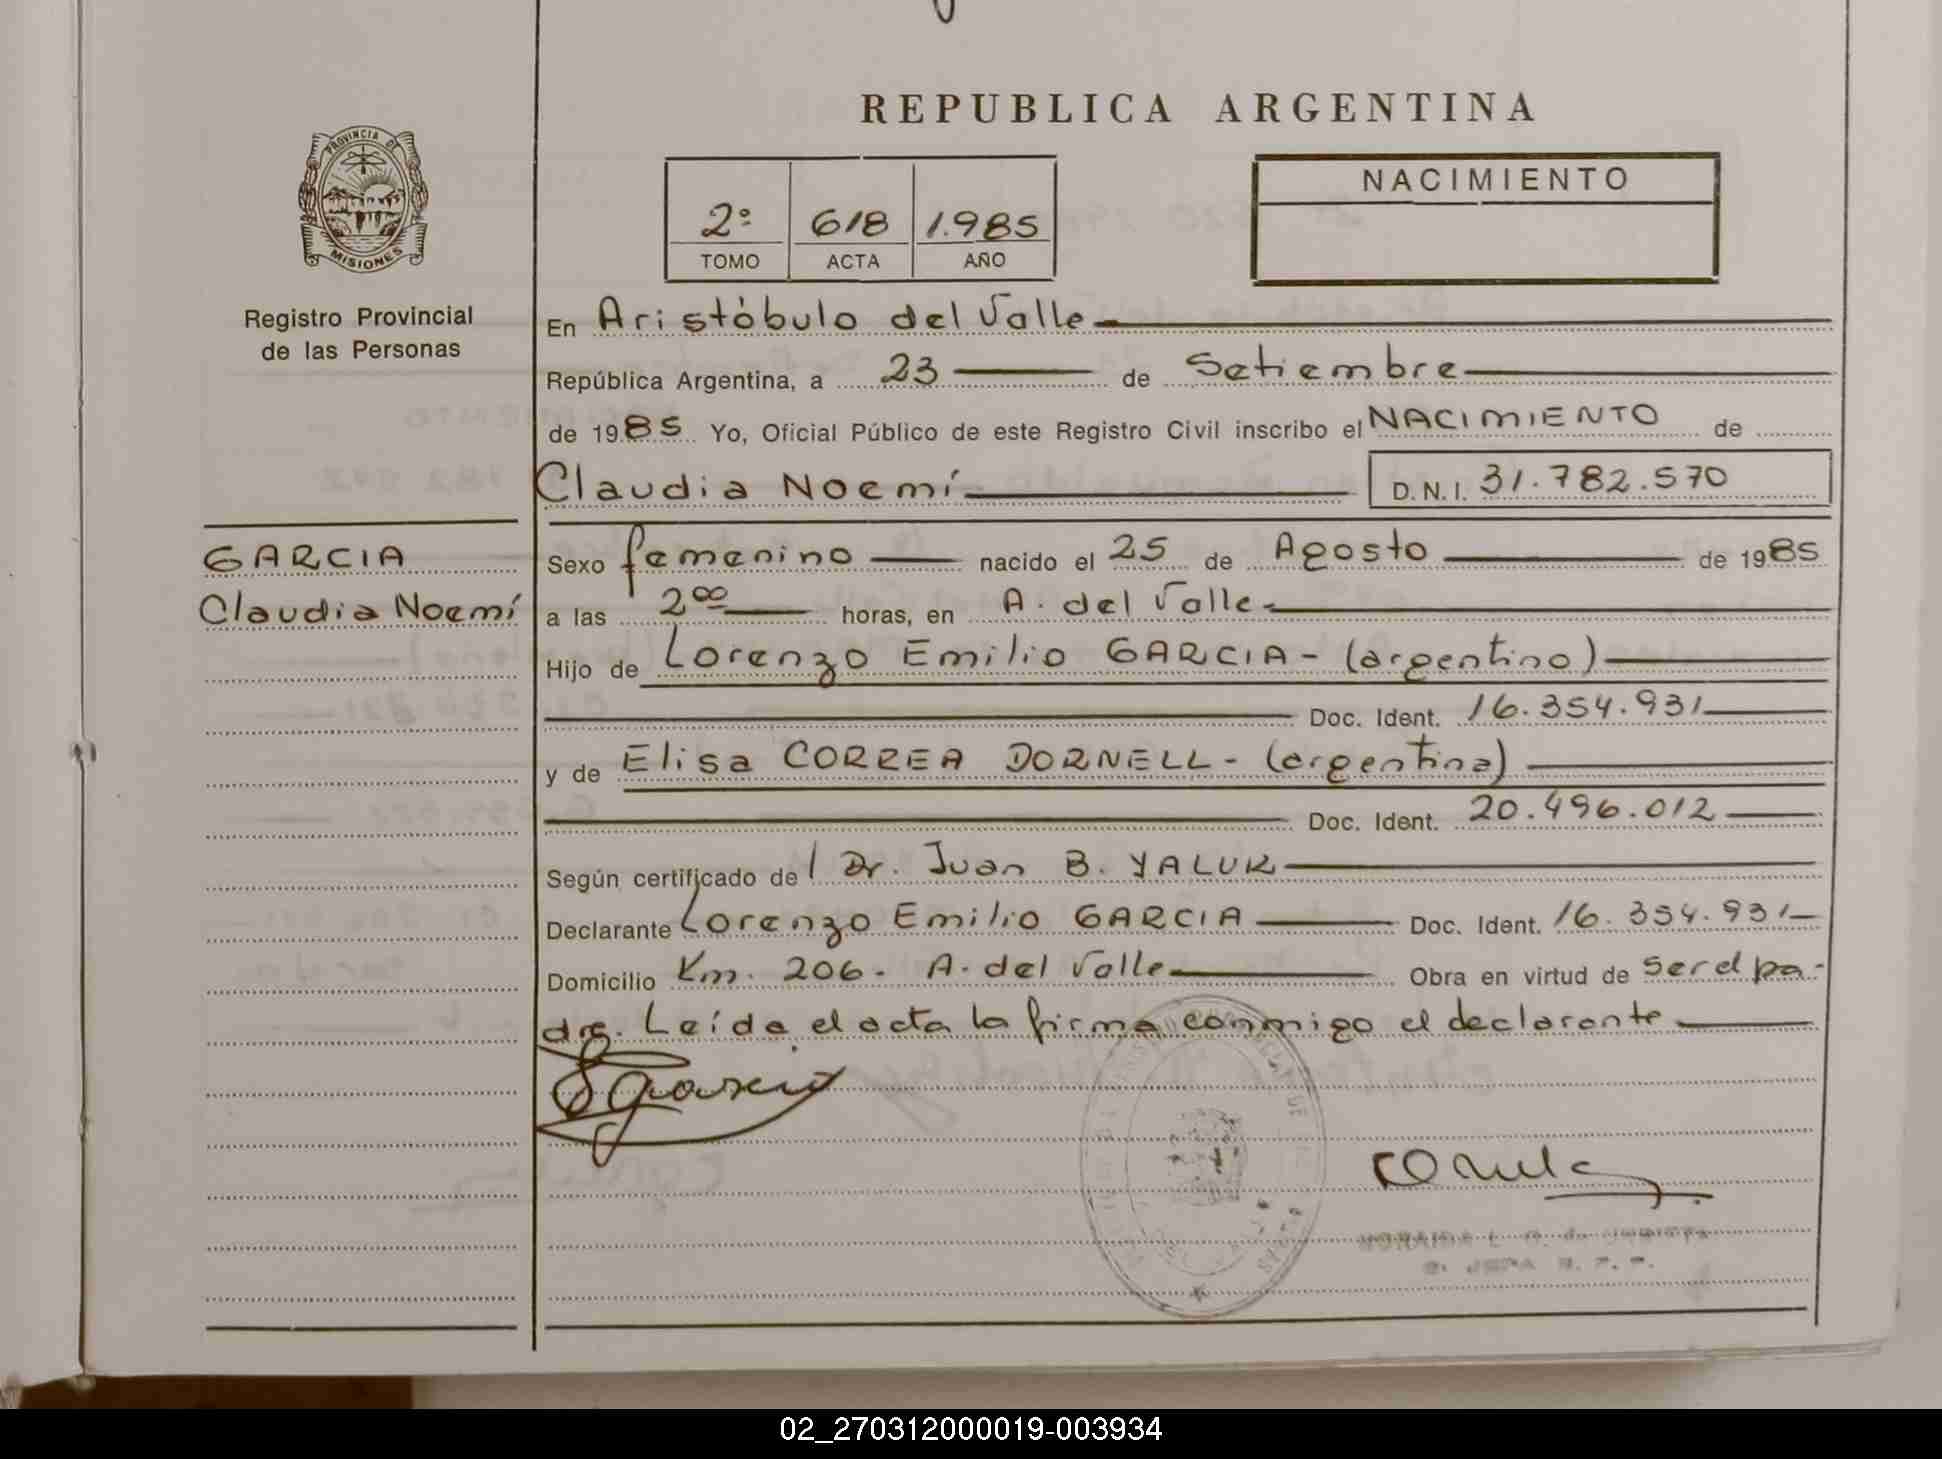 REPUBLICA ARGENTINA
PROVINCIA DE
MISIONES
Registro Provincial
de las Personas
2º 618 1.985
TOMO ACTA AÑO
NACIMIENTO
En Aristóbulo del Valle
República Argentina, a 23 de Setiembre
de 1985 Yo, Oficial Público de este Registro Civil inscribo el NACIMIENTO de
Claudia Noemí D.N.I. 31.782.570
GARCIA
Claudia Noemí
Sexo femenino nacido el 25 de Agosto de 1985
a las 2⁰⁰ horas, en A. del Valle
Hijo de Lorenzo Emilio GARCIA - (argentino)
Doc. Ident. 16.354.931
y de Elisa CORREA DORNELL - (argentina)
Doc. Ident. 20.496.012
Según certificado del Dr. Juan B. YALUK
Declarante Lorenzo Emilio GARCIA Doc. Ident. 16.354.931
Domicilio Km. 206. A. del Valle Obra en virtud de ser el pa-
dre. Leída el acta la firma conmigo el declarante
02_270312000019-003934